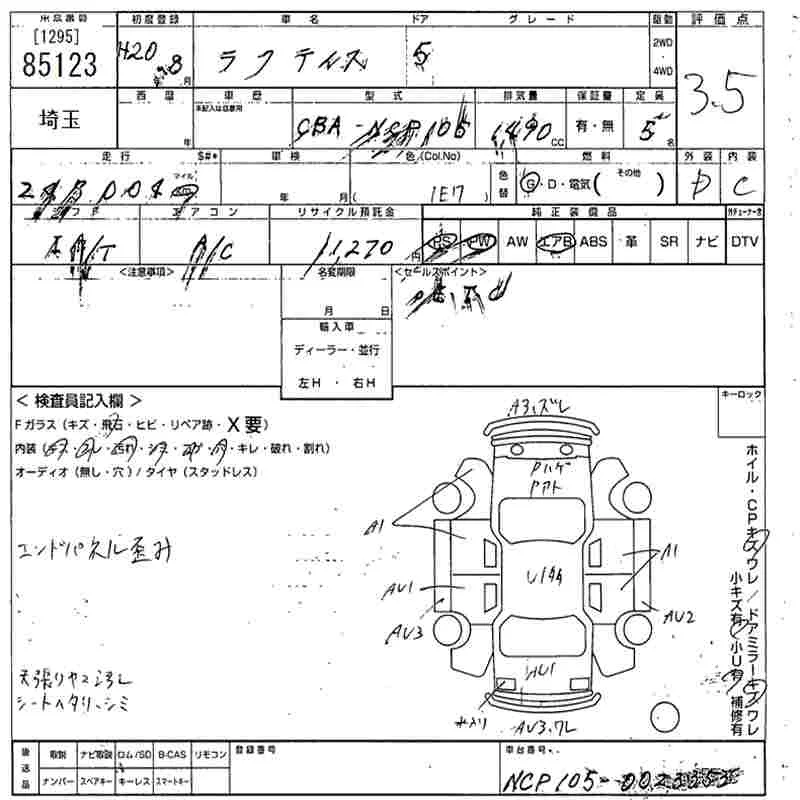 出品番号 初度登録 車名 ドア グレード 駆動 評価点
[1295]
85123
H20 8月
ラクティス 5
2WD
・
4WD
3.5
埼玉
西暦 年
車歴
未記入は自家用
型式
排気量
1490 cc
保証書
有・無
定員
5名
走行 S#* マイル
車検
年 月
色(Col.No)
( 1E7 )
色替
燃料
G・D・電気( その他 )
外装
D
内装
C
シフト
エアコン
A/C
リサイクル預託金
11,270円
純正装備品
PS PW AW エアB ABS 革 SR ナビ DTV
<注意事項>
名変期限
月 日
<セールスポイント>
輸入車
ディーラー・並行
左H ・ 右H
キーロック
<検査員記入欄>
Fガラス(キズ・飛石・ヒビ・リペア跡・X要)
キレ・破れ・割れ)
オーディオ(無し・穴)/タイヤ(スタッドレス)
エンドパネル歪み
A3,ズレ
Pハゲ
Pアト
A1
A1
AU1
AU3
AU2
AU1
AU3,ワレ
天張りヤブ汚レ
シートヘタリ、シミ
ホイル・CPキズワレ/ドアミラーキズワレ
小キズ有 小U有 補修有
後送品
取説 ナビ取説 ロム/SD B-CAS リモコン
ナンバー スペアキー キーレス スマートキー
登録番号
車台番号
NCP105-